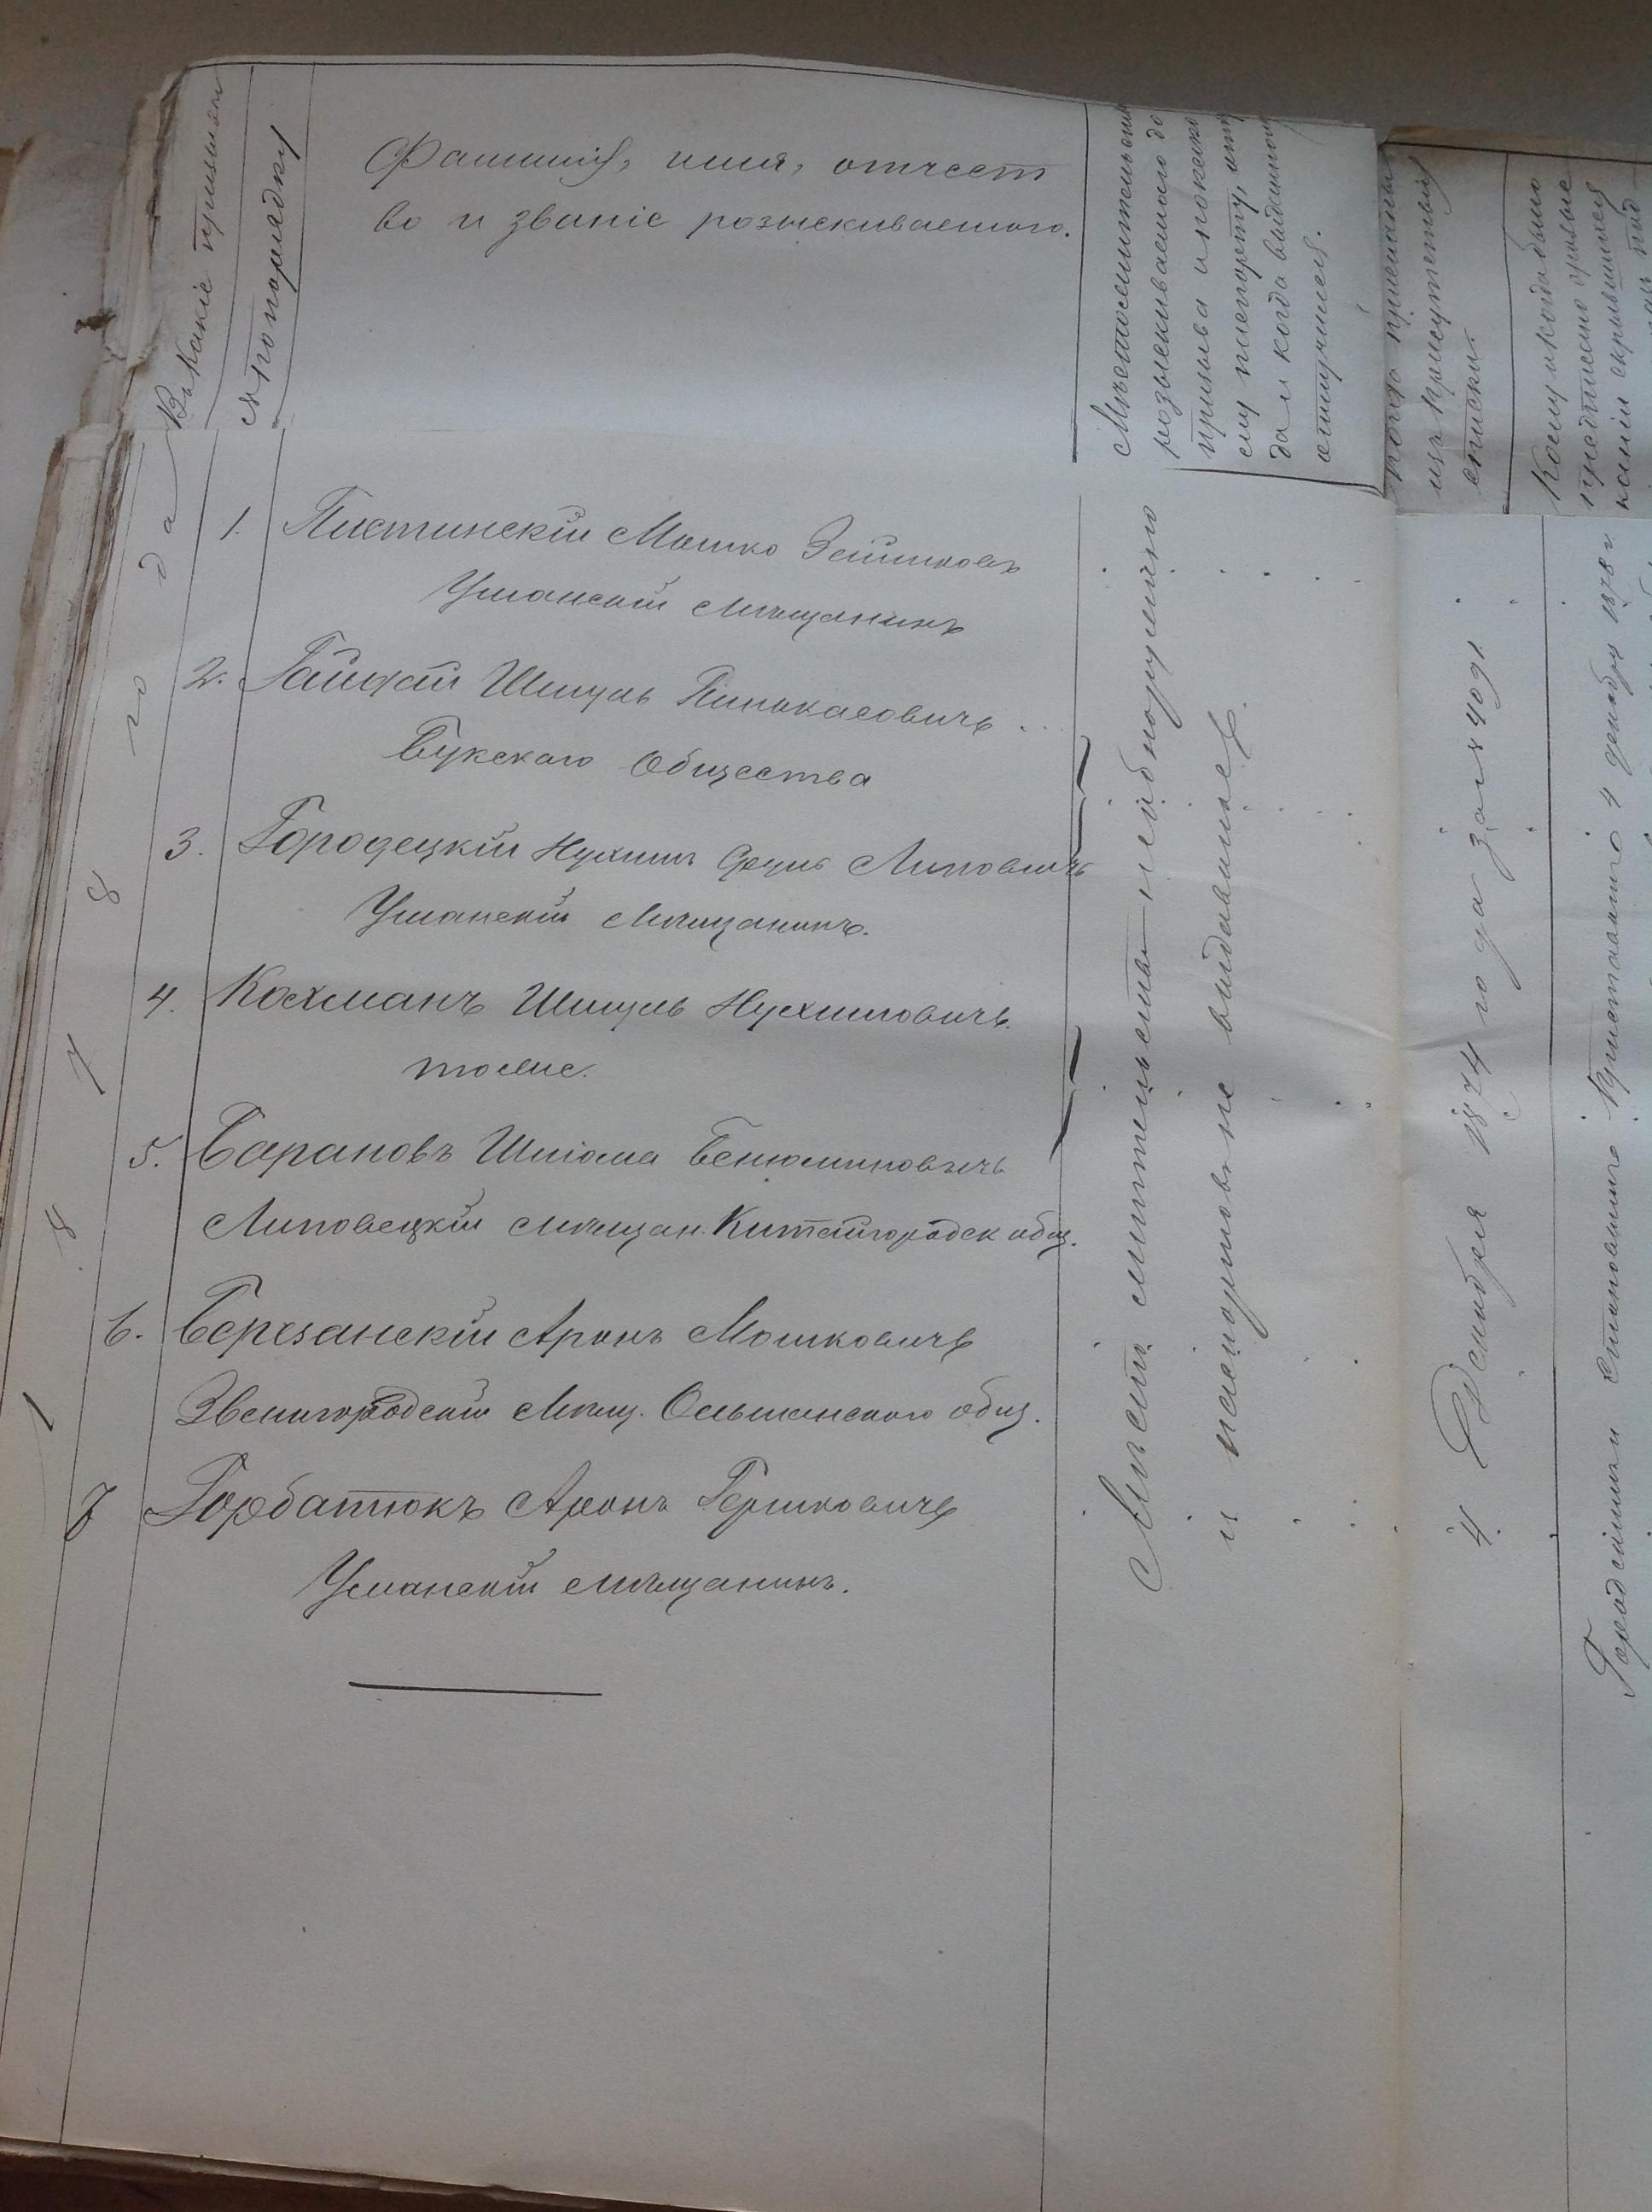 Въ какіе призывы
№ по порядку
Фамилія, имя, отчест
во и званіе розыскиваемаго.
Мѣстожительство
розыскиваемаго до
призыва и по како
му паспорту, отку
да и когда выданному
отлучился.
изъ Присутствія
списки.
Кому и когда было
предписано
1 8 7 8 года
1. Пистинскій Мошко
Уманскій мѣщанинъ
2. Гайдай Шмуль Пинькасовичъ
Букскаго Общества
3. Городецкій Нухимъ Сруль Липовичъ
Уманскій мѣщанинъ.
4. Кохманъ Шмуль Нухимовичъ
тоже.
5. Барановъ Шліома Беньюминовичъ
Липовецкій мѣщан. Китайгородск общ.
6. Березанскій Аронъ Мошковичъ
Звенигородскій Мѣщ. Ольшанскаго общ.
7 Горбатюкъ Аронъ Гершковичъ
Уманскій мѣщанинъ.
Мѣсто жительства необнаружено
и паспортовъ не выдавалось.
4 Декабря 1874 года за №
Городскимъ Становымъ Приставамъ 4 декабря 1878 г